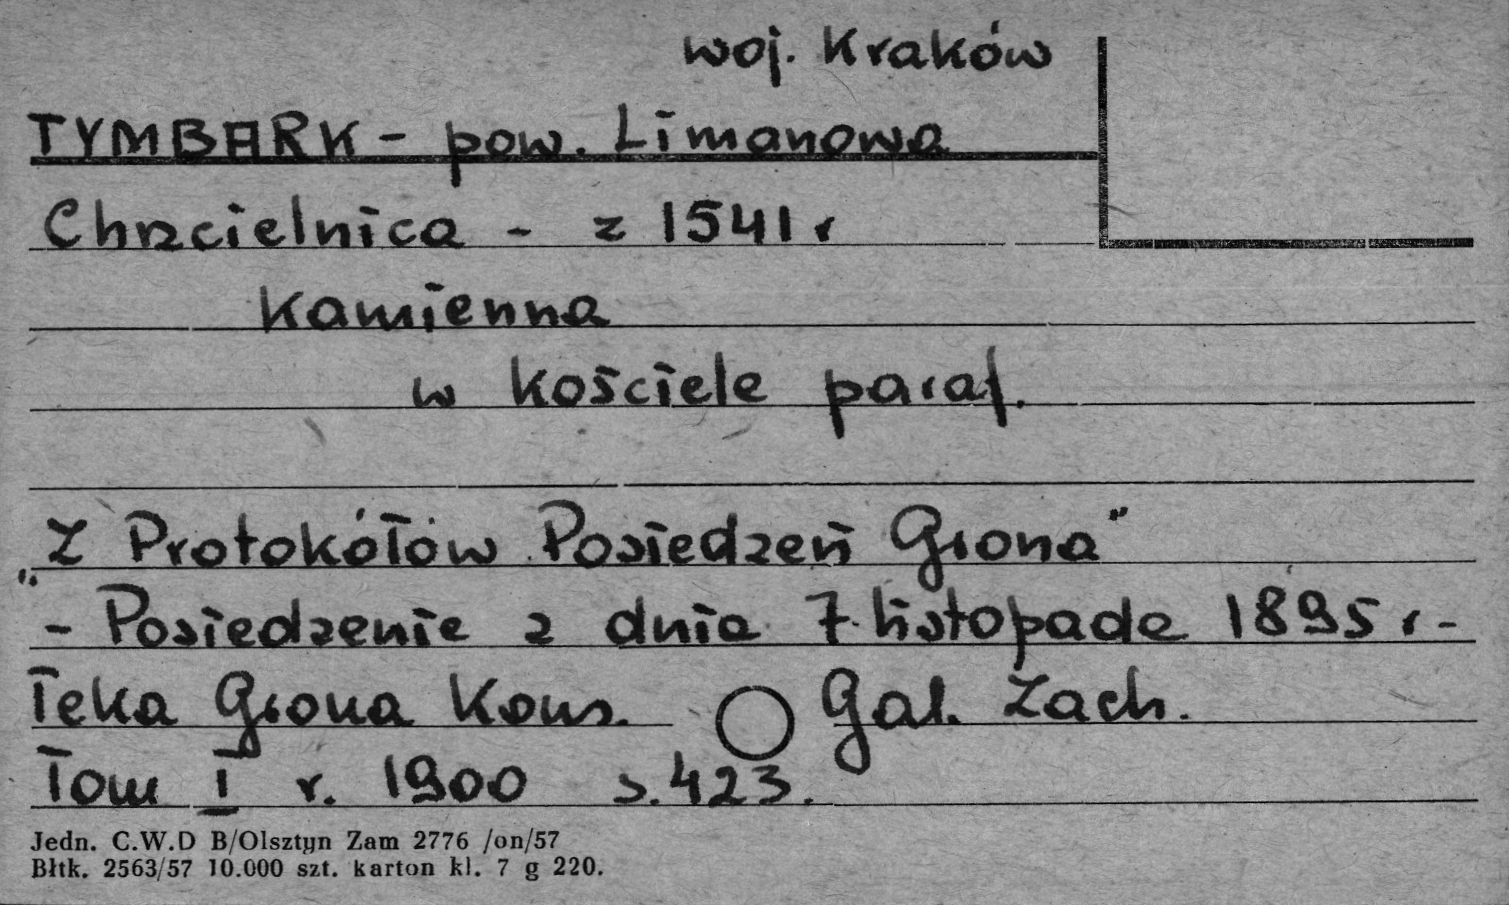 woj. Kraków
TYMBARK - pow. Limanowa
Chrzcielnica - z 1541 r
kamienna
w kościele paraf.
„Z Protokółów Posiedzeń Grona"
- Posiedzenie z dnia 7 listopada 1895 r -
Teka Grona Kons. Gal. Zach.
Tom I r. 1900 s. 423.
Jedn. C.W.D B/Olsztyn Zam 2776 /on/57
Błtk. 2563/57 10.000 szt. karton kl. 7 g 220.